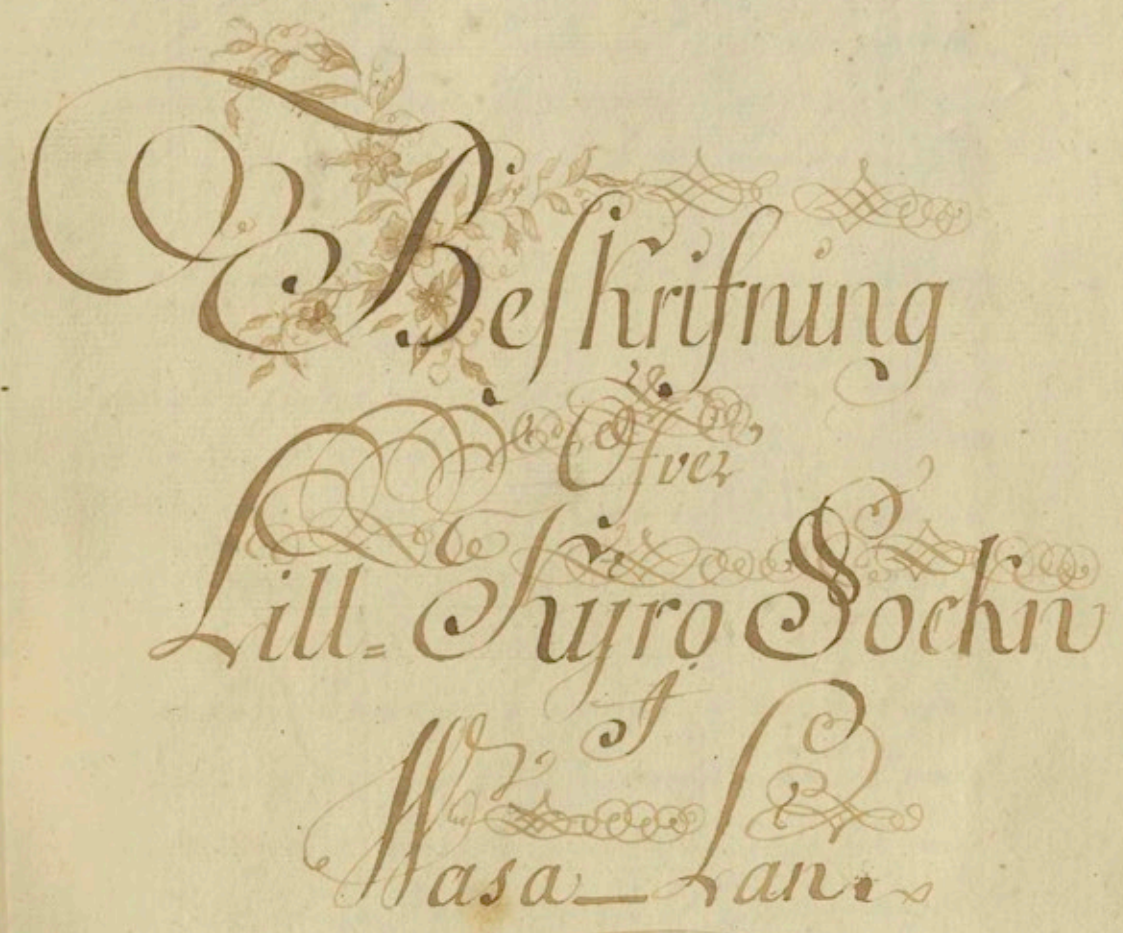 Beskrifning
Öfver
Lill-Kyro Sockn
I
Wasa Län.